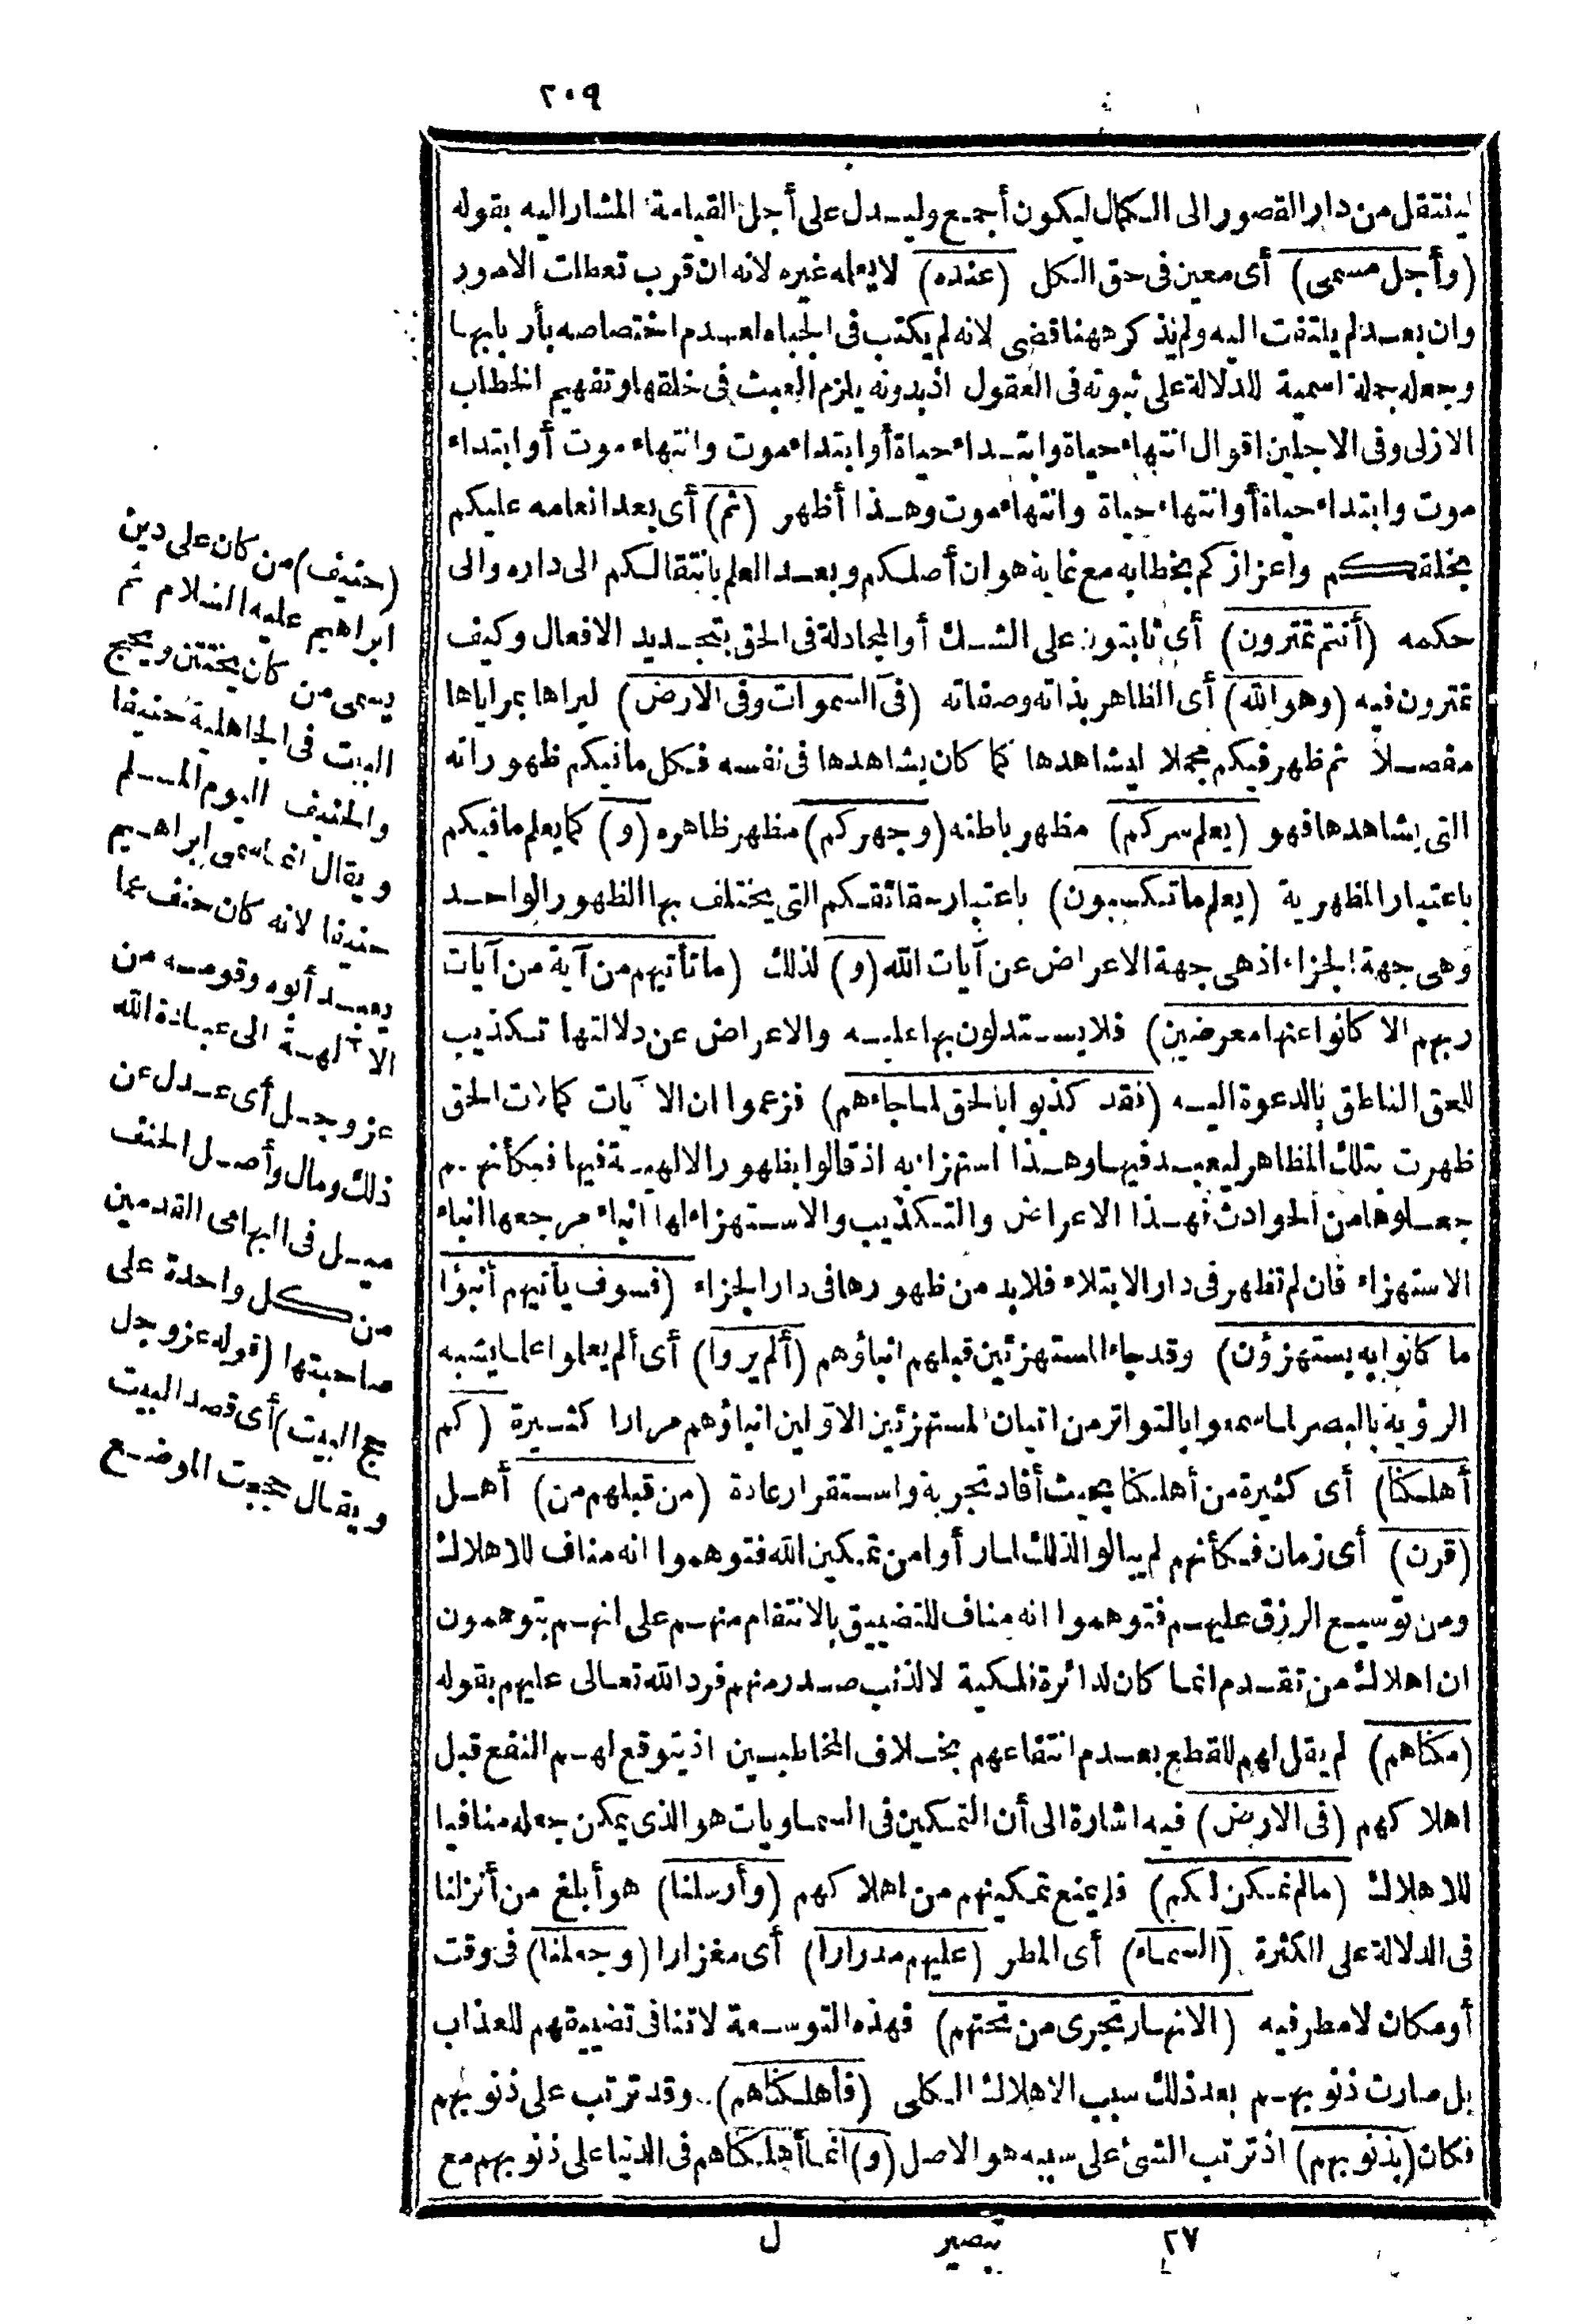 ٢٠٩
لينتقل من دار القصور الى الكمال ليكون أجمع وليدل على أجل القيامة المشار اليه بقوله
(وأجل مسمى) أى معين فى حق الكل (عنده) لا يعلمه غيره لانه ان قرب تعطلت الامور
وان بعد لم يلتفت اليه ولم يذكر ههنا قضى لانه لم يكتب فى الجباه لعدم اختصاصه بأربابها
وجعله جملة اسمية للدلالة على ثبوته فى العقول اذ بدونه يلزم العبث فى خلقها وتفهيم الخطاب
الازلى وفى الاجلين اقوال انتهاء حياة وابتداء حياة أو ابتداء موت وانتهاء موت أو ابتداء
موت وابتداء حياة أو انتهاء حياة وانتهاء موت وهذا أظهر (ثم) أى بعد انعامه عليكم
بخلقكم واعزازكم بخطابه مع غاية هوان أصلكم وبعد العلم بانتقالكم الى داره والى
حكمه (أنتم تمترون) أى ثابتون على الشك أو المجادلة فى الحق بتجديد الافعال وكيف
تمترون فيه (وهو الله) أى الظاهر بذاته وصفاته (فى السموات وفى الارض) ليراها بمراياها
مفصلا ثم ظهر فيكم مجملا ليشاهدها كما كان يشاهدها فى نفسه فكل ما فيكم ظهوراته
التى يشاهدها فهو (يعلم سركم) مظهر باطنه (وجهركم) مظهر ظاهره (و) كما يعلم ما فيكم
باعتبار المظهرية (يعلم ما تكسبون) باعتبار حقائقكم التى يختلف بها الظهور الواحد
وهى جهة الجزاء اذ هى جهة الاعراض عن آيات الله (و) لذلك (ما تأتيهم من آية من آيات
ربهم الا كانوا عنها معرضين) فلا يستدلون بها عليه والاعراض عن دلالتها تكذيب
للحق الناطق بالدعوة اليه (فقد كذبوا بالحق لما جاءهم) فزعموا ان الآيات كمالات الحق
ظهرت بتلك المظاهر ليعبد فيها وهذا استهزاء به اذ قالوا بظهور الالهية فيها فكأنهم
جعلوها من الحوادث فهذا الاعراض والتكذيب والاستهزاء لها انباء مرجعها انباء
الاستهزاء فان لم تظهر فى دار الابتلاء فلا بد من ظهورها فى دار الجزاء (فسوف يأتيهم أنبؤا
ما كانوا به يستهزؤن) وقد جاء المستهزئين قبلهم انباؤهم (ألم يروا) أى ألم يعلموا علما يشبه
الرؤية بالبصر لما سمعوا بالتواتر من اتيان المستهزئين الاولين انباؤهم مرارا كثيرة (كم
أهلكنا) أى كثيرة من أهلكنا بحيث أفاد تجربة واستقرار عادة (من قبلهم من) أهل
(قرن) أى زمان فكأنهم لم يبالوا لذلك لما رأوا من تمكين الله فتوهموا انه مناف للاهلاك
ومن توسيع الرزق عليهم فتوهموا انه مناف للتضييق بالانتقام منهم على انهم يتوهمون
ان اهلاك من تقدم انما كان لدائرة فلكية لا لذنب صدر منهم فرد الله تعالى عليهم بقوله
(مكناهم) لم يقل لهم للقطع بعدم انتفاعهم بخلاف المخاطبين اذ يتوقع لهم النفع قبل
اهلاكهم (فى الارض) فيه اشارة الى أن التمكين فى السماويات هو الذى يمكن جعله منافيا
للاهلاك (ما لم نمكن لكم) فلم يمنع تمكينهم من اهلاكهم (وأرسلنا) هو أبلغ من أنزلنا
فى الدلالة على الكثرة (السماء) أى المطر (عليهم مدرارا) أى مغزارا (وجعلنا) فى وقت
أو مكان لا مطر فيه (الانهار تجرى من تحتهم) فهذه التوسعة لا تنافى تضييقهم للعذاب
بل صارت ذنوبهم بعد ذلك سبب الاهلاك الكلى (فأهلكناهم) وقد ترتب على ذنوبهم
فكان (بذنوبهم) اذ ترتب الشئ على سببه هو الاصل (و) انما أهلكناهم فى الدنيا على ذنوبهم مع
(حنيف) من كان على دين
ابراهيم عليه السلام ثم
يسمى من كان يختتن ويحج
البيت فى الجاهلية حنيفا
والحنيف اليوم المسلم
ويقال انما سمى ابراهيم
حنيفا لانه كان حنف عما
يعبد أبوه وقومه من
الآلهة الى عبادة الله
عز وجل أى عدل عن
ذلك ومال وأصل الحنف
ميل فى ابهامى القدمين
من كل واحدة على
صاحبتها (قوله عز وجل
حج البيت) أى قصد البيت
ويقال حججت الموضع
٢٧ تبصير ل